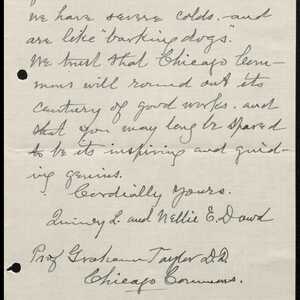 we have severe colds, and
are like "barking dogs."
We trust that Chicago Com-
mons will round out its
century of good works, and
that you may long be spared
to be its inspiring and guid-
ing genius.
Cordially yours,
Quincy L. and Nellie E. Dowd
Prof Graham Taylor D.D.
Chicago Commons.